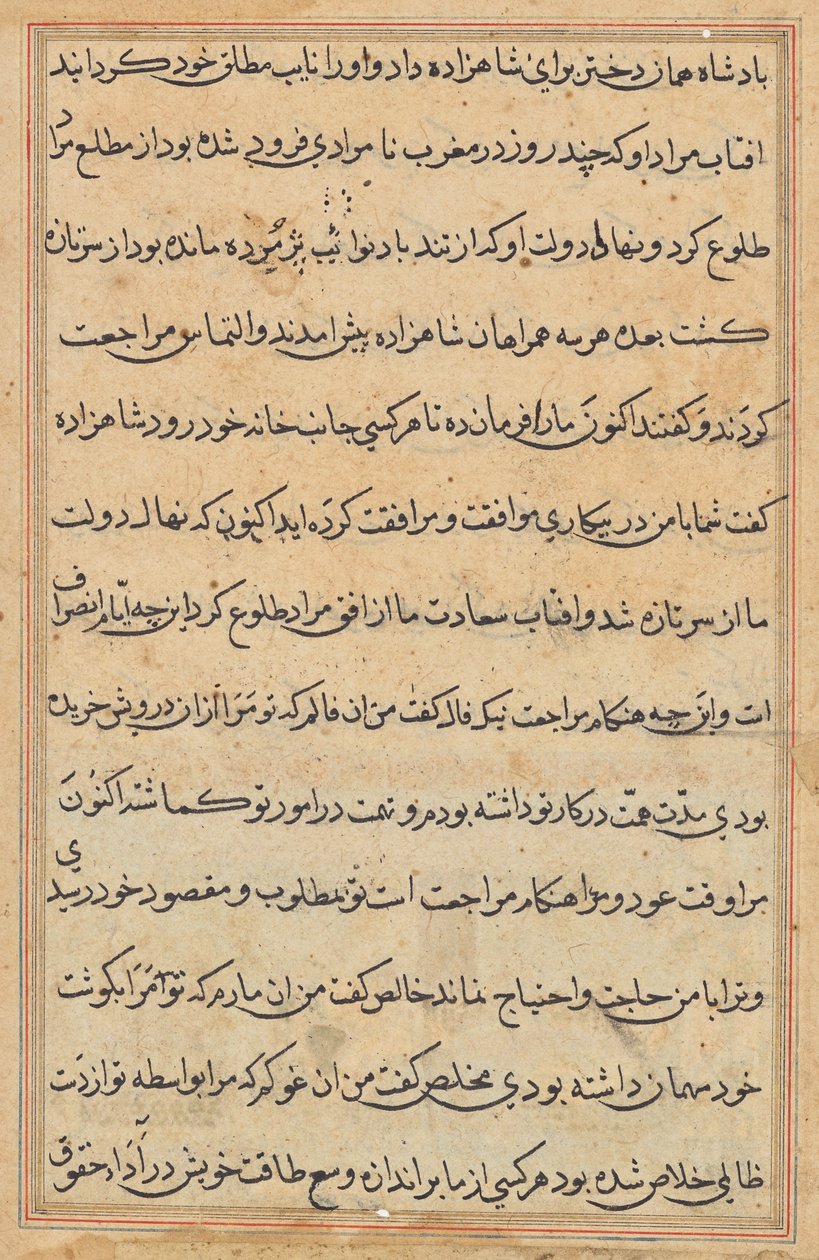 بادشاه همان دختر برای شاهزاده داد و اورا نایب مطلق خود کردانید
افتاب مراد او که چند روز در مغرب نا مرادی فرود شده بود از مطلع مراد
طلوع کرد و نهال دولت او که از تند باد نوائب پژمرده مانده بود از سر تازه
کشت بعده هر سه همراهان شاهزاده پیش امدند و التماس مراجعت
کردند و کفتند اکنون مارا فرمان ده تا هر کسی جانب خانه خود رود شاهزاده
کفت شما با من در بیکاری موافقت و مرافقت کرده اید اکنون که نهال دولت
ما از سر تازه شد و افتاب سعادت ما از افق مراد طلوع کرد این چه ایّام انصراف
است و این چه هنکام مراجعت نیک فال کفت من ان فالم که تو مرا ازان درویش خریده
بودی مدّت همّت در کار تو داشته بودم و نهمت در امور تو کماشته اکنون
مرا وقت عود و مرا هنکام مراجعت است تو بمطلوب و مقصود خود رسیدی
و ترا با من حاجت و احتیاج نماند خالص کفت من ان مارم که تو مرا بکوشت
خود مهمان داشته بودی مخلص کفت من ان غوکم که مرا بواسطه تو از دست
ظالمی خلاص شده بود هر کسی از ما بر اندازه وسع طاقت خویش در اداء حقوق